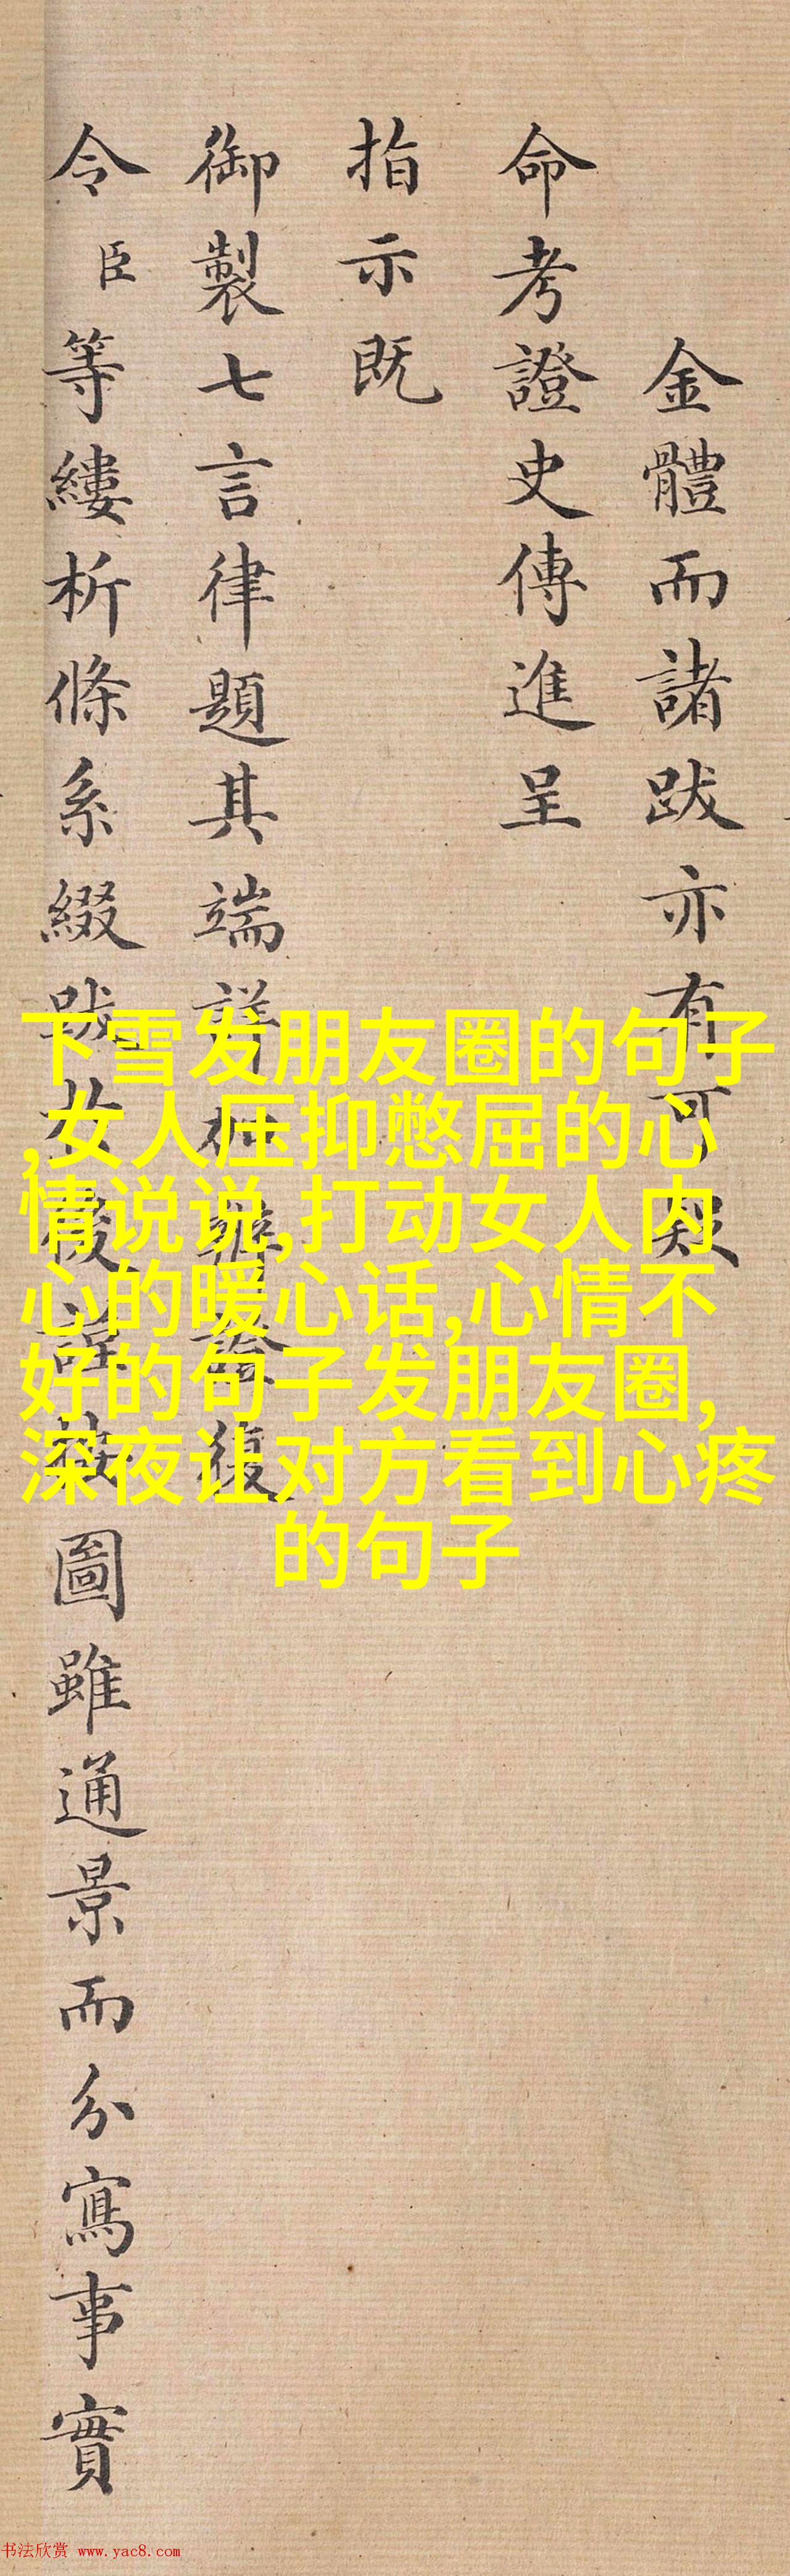 金體而諸跋亦有可疑
命考證史傳進呈
指示既
御製七言律題其端詳加辨論復
令臣等縷析條系綴跋
圖雖通景而分寫事實
下雪发朋友圈的句子
,女人压抑憋屈的心
情说说,打动女人内
心的暖心话,心情不
好的句子发朋友圈,
深夜让对方看到心疼
的句子
书法欣赏 www.yac8.com